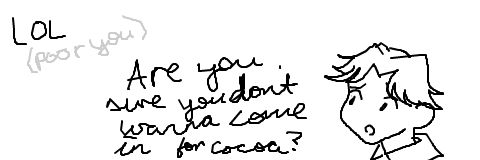 LOL
(poor you)
Are you
sure you don't
wanna come
in for cocoa?